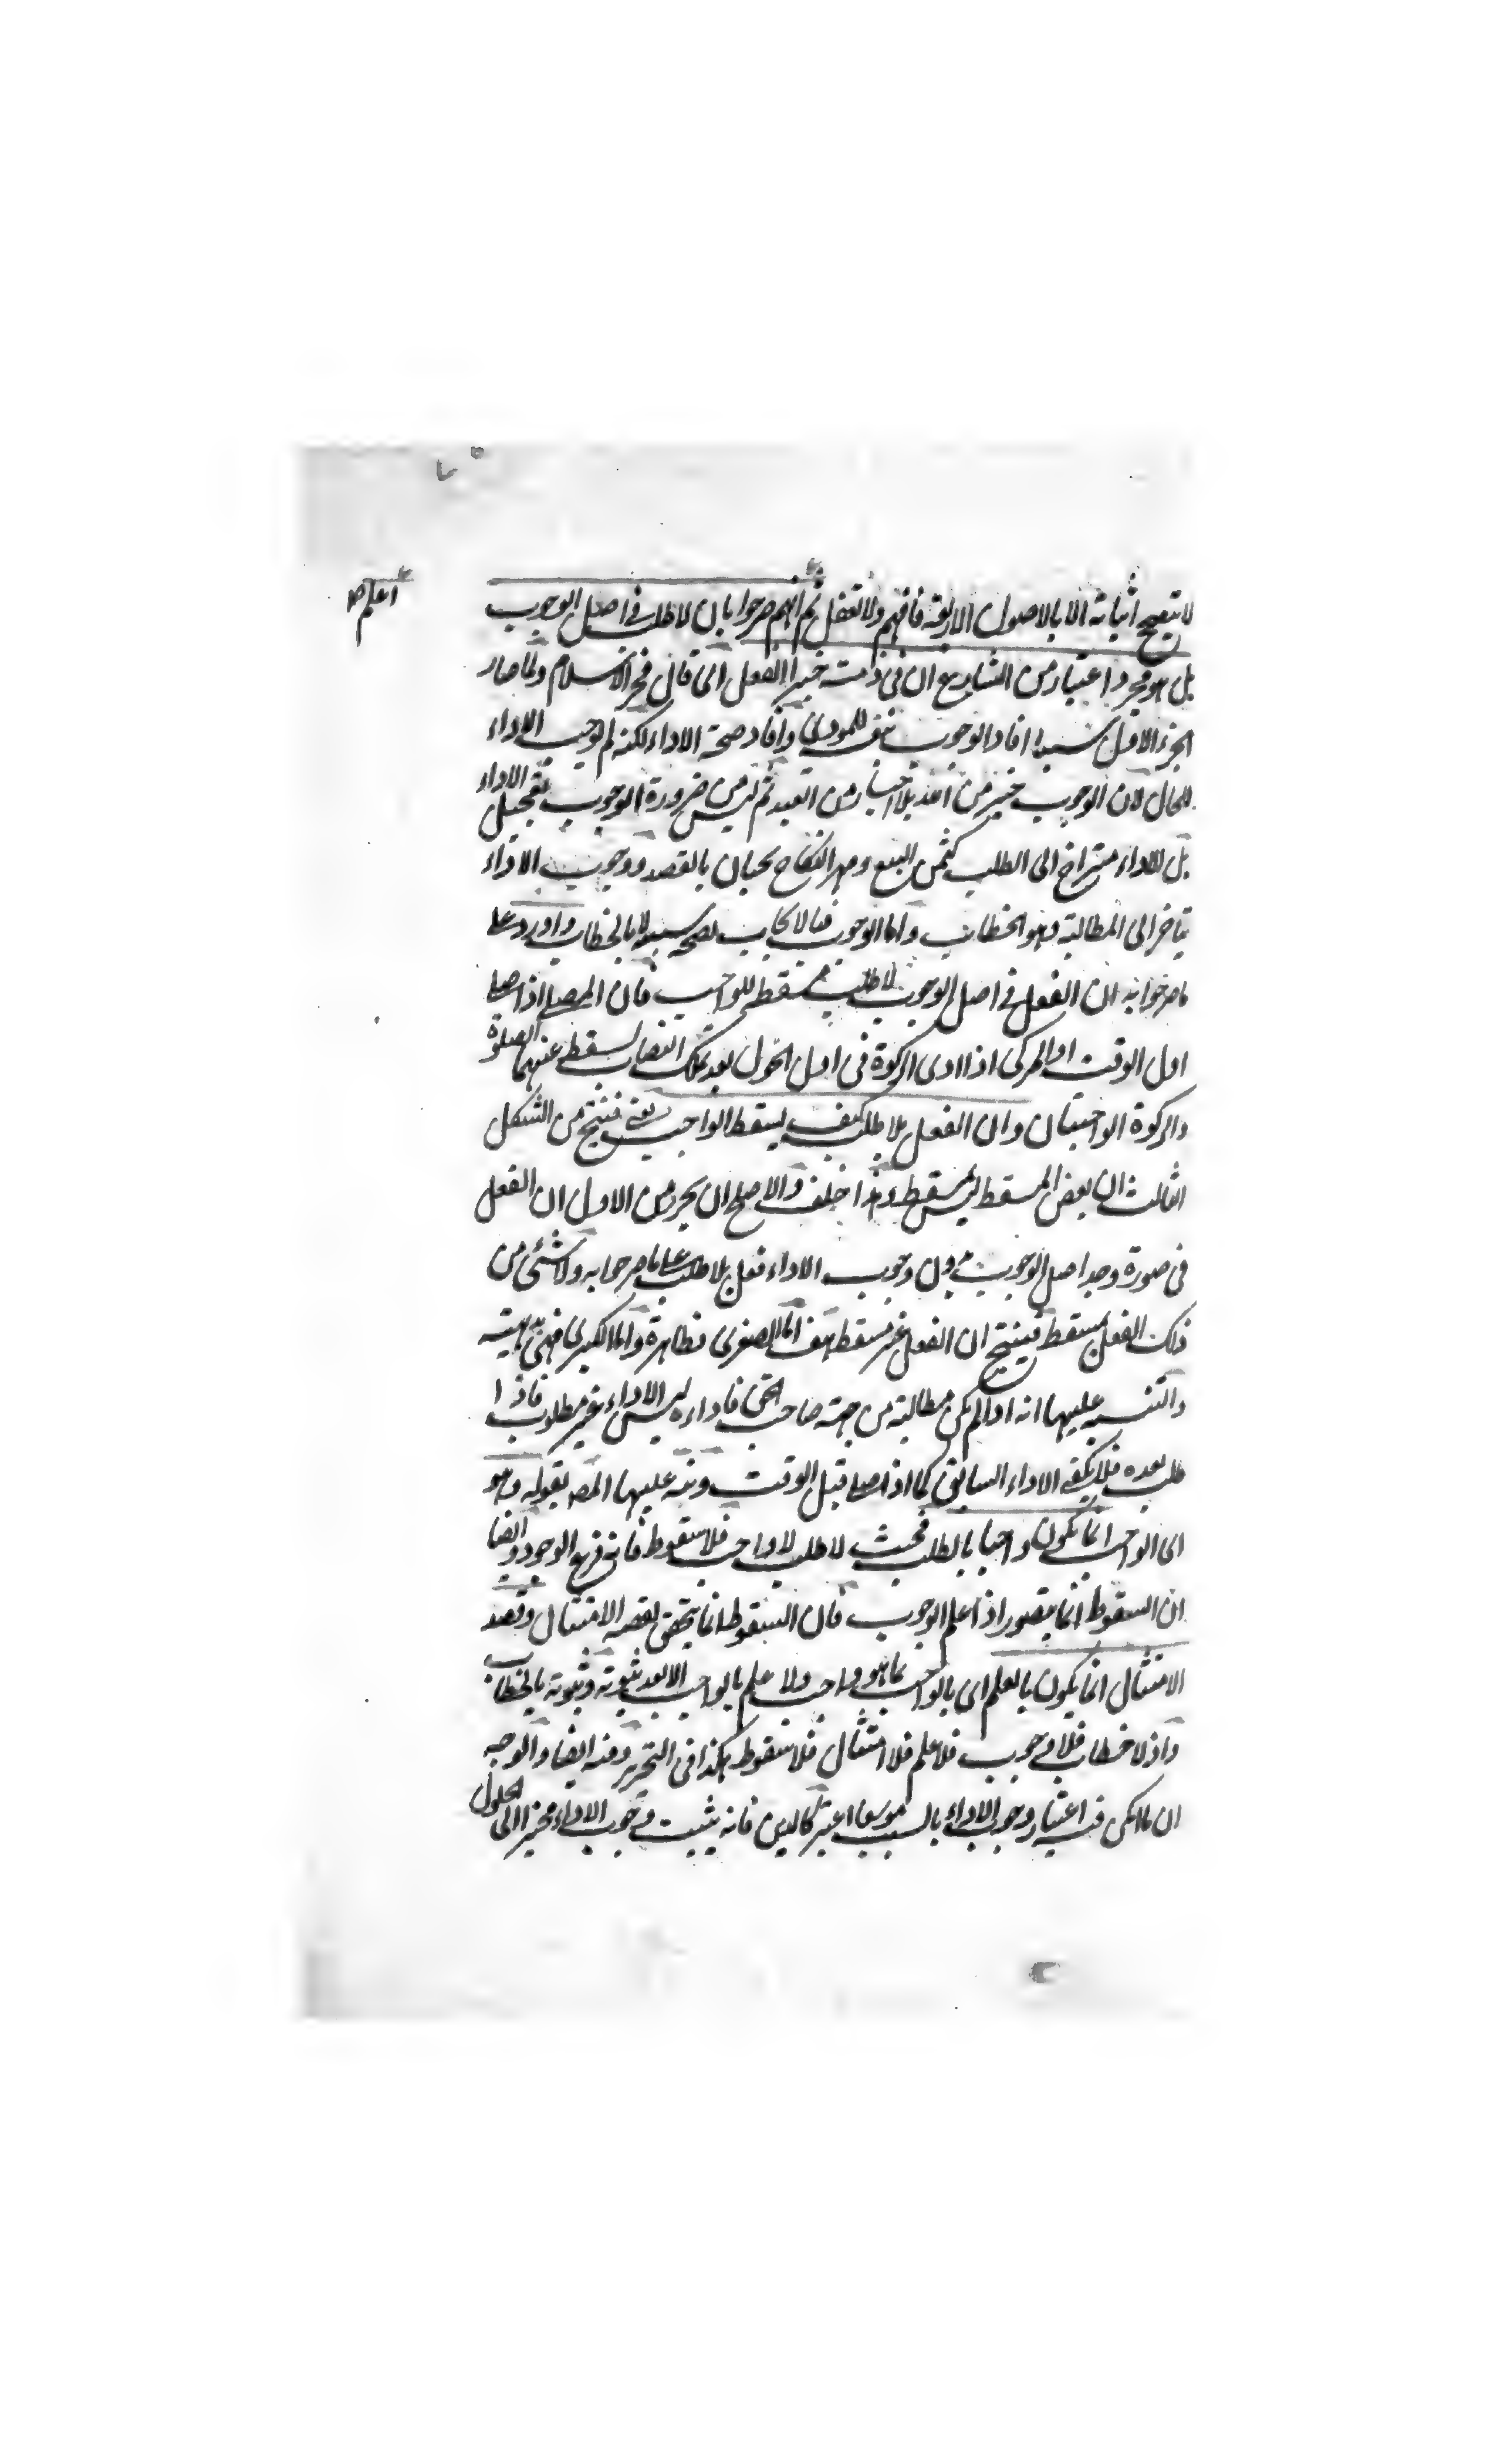 اعلم صه
لا يتضح اثباته الا بالاصول الاربعة فافهم ولا تغفل ثم انهم صرحوا بان لا طلب في اصل الوجوب
بل هو مجرد اعتبار من الشارع ان في ذمته جبرا الفعل الى قال فخر الاسلام ولما صار
الجزء الاول سببا افاد الوجوب بنفسه للمودى وافاد صحة الاداء لكنه لم يوجب الاداء
للحال لان الوجوب جبر من الله بلا اختيار من العبد ثم ليس من ضرورة الوجوب تعجيل الاداء
بل الاداء متراخ الى الطلب كثمن البيع ومهر النكاح يجبان بالعقد ووجوب الاداء
يتاخر الى المطالبة وهو الخطاب واما الوجوب فبالايجاب لصحة سببه لا بالخطاب واورد على
ما صرحوا به ان الفعل في اصل الوجوب بلا طلب مسقط للواجب فان المصلي اذا صلى
اول الوقت او المزكى اذا ادى الزكوة في اول الحول بعد تملك النصاب يسقط عنهما الصلوة
والزكوة الواجبتان وان الفعل بلا طلب كيف يسقط الواجب يعنى فينتج من الشكل
الثالث ان بعض المسقط ليس بمسقط وهذا خلف والاصلح ان يحرر من الاول ان الفعل
في صورة وجد اصل الوجوب دون وجوب الاداء فعل بلا طلب على ما صرحوا به ولا شئ من
ذلك الفعل بمسقط فينتج ان الفعل غير مسقط هف اما الصغرى فظاهرة واما الكبرى فهي بديهية
والتنبيه عليها انه اذا لم يكن مطالبة من جهة صاحب الحق فاداءه ليس الا اداء غير مطلوب فاذا
طلب بعده فلا يكفى الاداء السابق كما اذا صلى قبل الوقت ونبه عليها المصـ بقوله وهو
اى الواجب انما يكون واجبا بالطلب فحيث لا طلب لا واجب فلا سقوط فانه فرع الوجود وايضا
ان السقوط انما يتصور اذا علم الوجوب فان السقوط انما يتحقق بقصد الامتثال وقصد
الامتثال انما يكون بالعلم اى بالواجب بما هو واجب ولا علم بالواجب الا بعد ثبوته وثبوته بالخطاب
واذ لا خطاب فلا وجوب فلا علم فلا امتثال فلا سقوط هكذا في التحرير وفيه ايضا والوجه
ان ما امكن فيه اعتبار وجوب الاداء بالسبب موسعا اعتبر كالدين فانه يثبت وجوب الاداء مخيرا الى الحلول